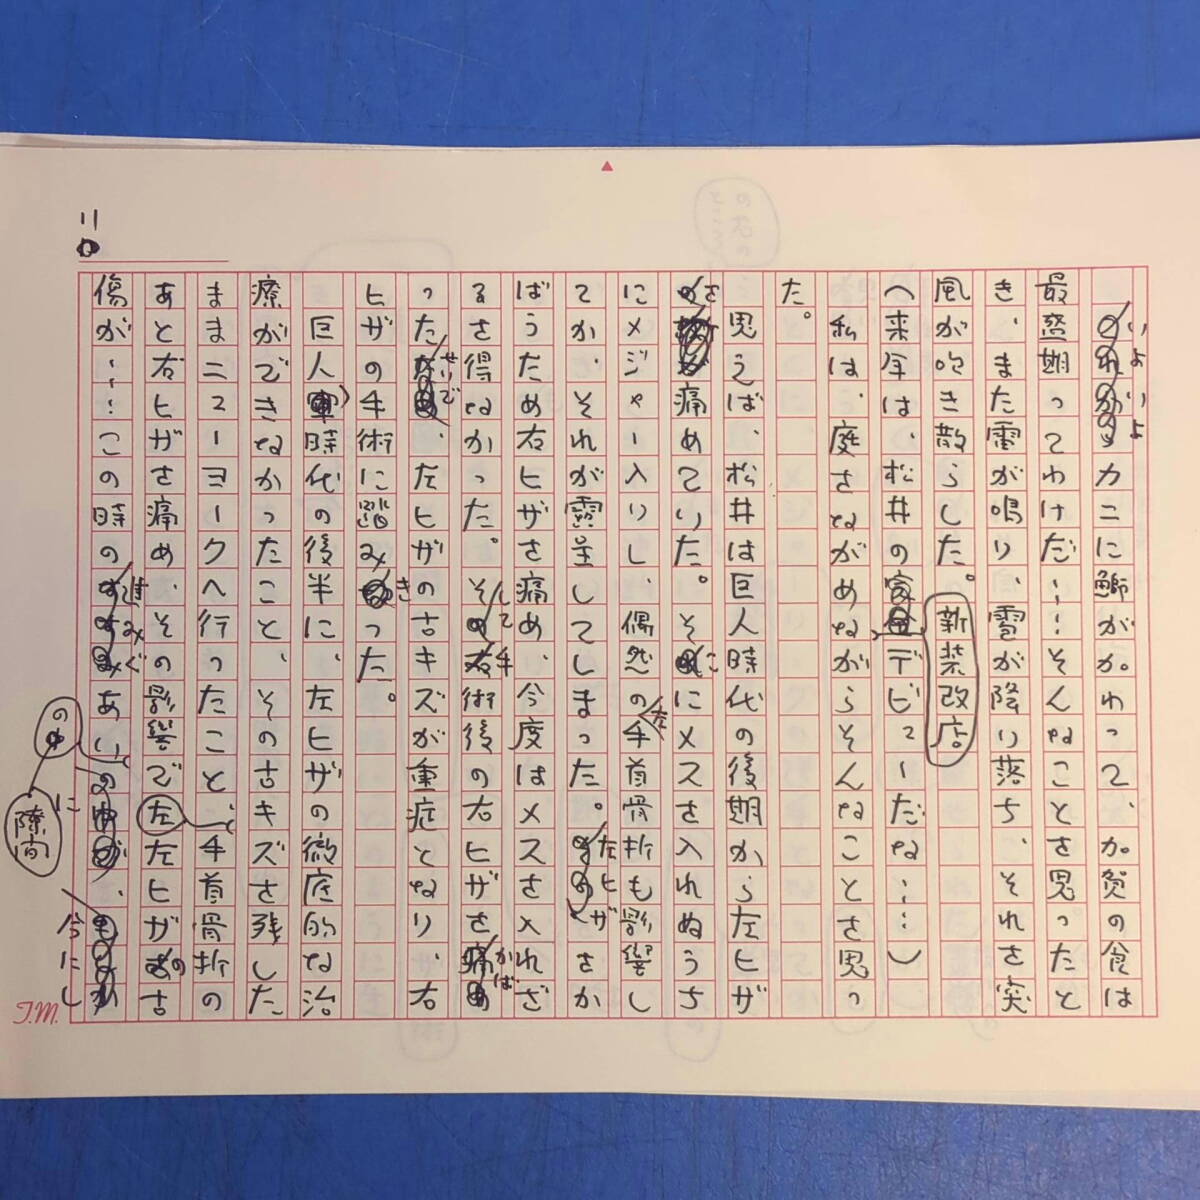 11
いよいよカニに鰤がかわって、加賀の食は
最盛期ってわけだ……そんなことを思ったと
き、また雷が鳴り、雪が降り落ち、それを突
風が吹き散らした。
新装改店
へ来年は、松井の家デビューだな……)
私は、庭をながめながらそんなことを思っ
た。
思えば、松井は巨人時代の後期から左ヒザ
を痛めていた。そこにメスを入れぬうち
にメジャー入りし、偶然の左手首骨折も影響し
てか、それが露呈してしまった。左ヒザをか
ばうため右ヒザを痛め、今度はメスを入れざ
るを得なかった。そして手術後の右ヒザをかば
ったせいで、左ヒザの古キズが重症となり、右
ヒザの手術に踏みきった。
巨人時代の後半に、左ヒザの徹底的な治
療ができなかったこと、その古キズを残した
ままニューヨークへ行ったこと、手首骨折の
あと右ヒザを痛め、その影響で左ヒザの古
傷が……この時の進みぐあいの中に、今にし
隙間
T.M.